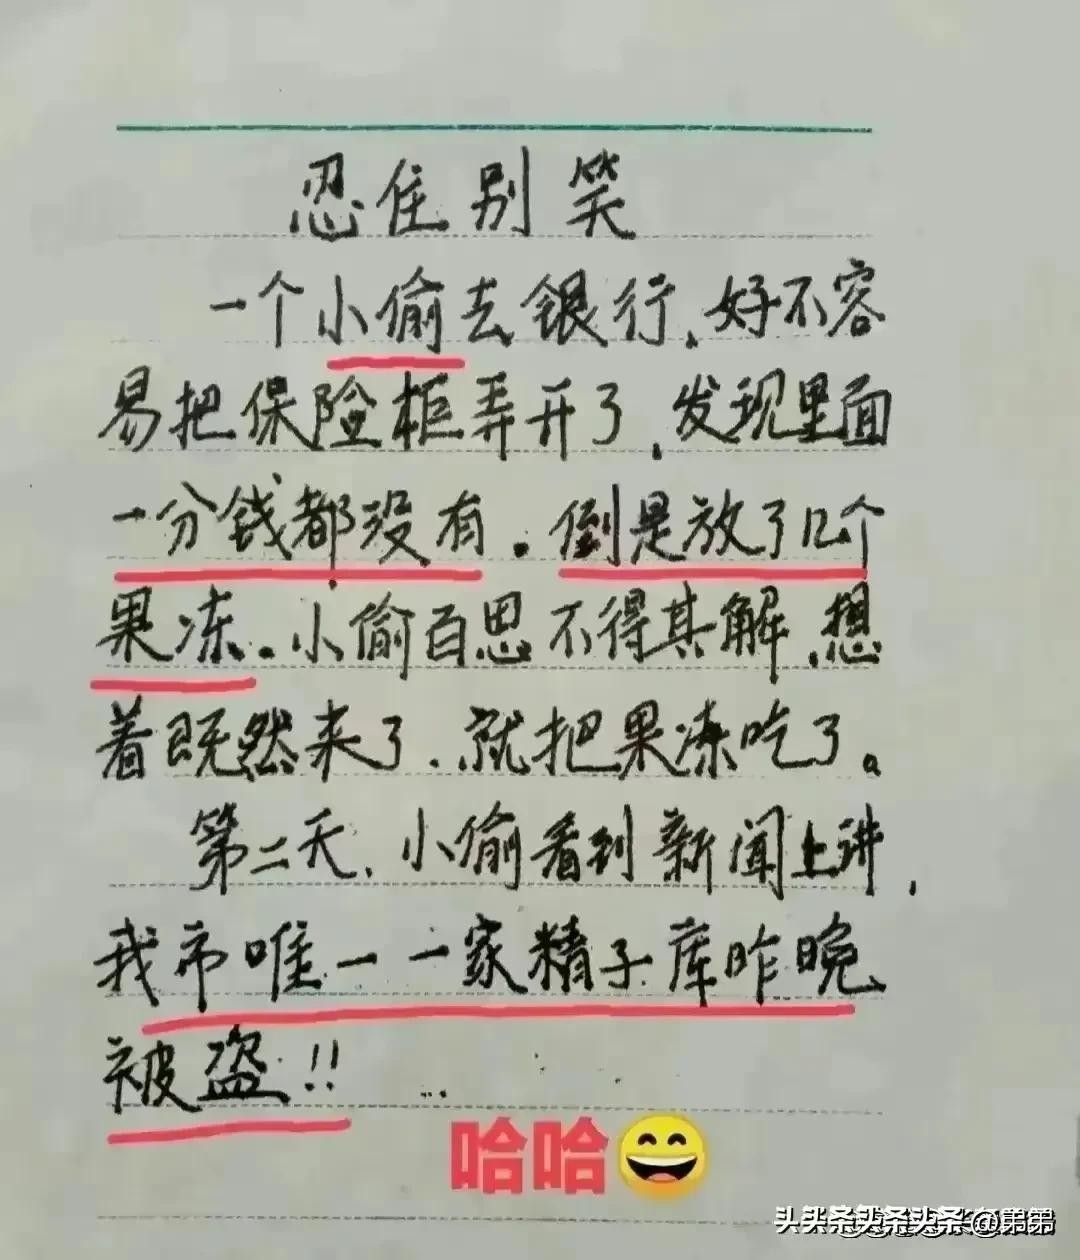 忍住别笑
一个小偷去银行,好不容
易把保险柜弄开了,发现里面
一分钱都没有。倒是放了几个
果冻。小偷百思不得其解,想
着既然来了,就把果冻吃了。
第二天,小偷看到新闻上讲,
我市唯一一家精子库昨晚
被盗!!
哈哈